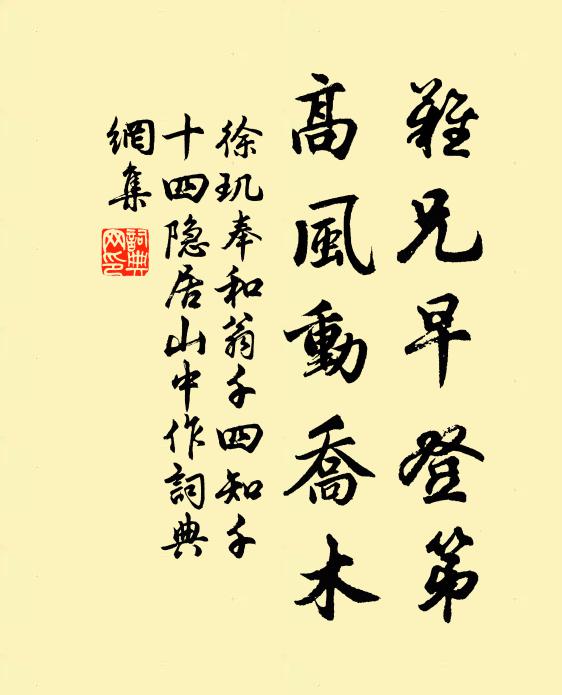 難兄早登第
高風動喬木
徐玑奉和翁千四知千
十四隐居山中作詞典
網集
詞典網印